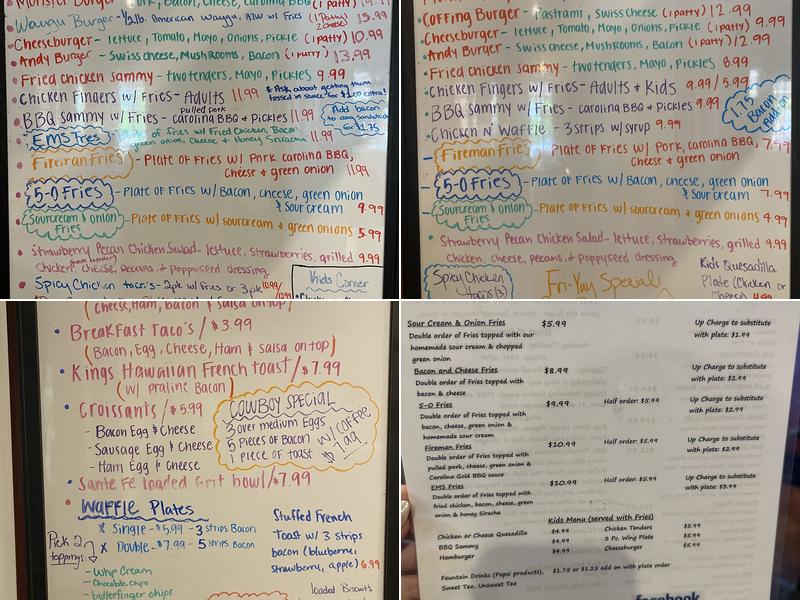 Monster Burger - Pork, Bacon, Cheese,
Waugu Burger - 1/2lb. American Waygu, ATW w/ Fries (1 Patty) 15.99
2cheese
Cheeseburger - lettuce, Tomato, Mayo, Onions, Pickle (1 patty) 10.99
Andy Burger - Swiss cheese, Mushrooms, Bacon (1 patty) 13.99
Fried chicken sammy - two tenders, Mayo, Pickles 9.99
Chicken Fingers w/ Fries - Adults 11.99
* Ask about getting them tossed in sauce for $1.00 extra!
pulled pork
BBQ sammy w/ Fries - carolina BBQ & Pickles 11.99
Add bacon to any sandwich for $1.75
EMS Fries - Plate of Fries w/ Fried Chicken, Bacon,
green onion, Cheese & Honey Sriracha 11.99
Fireman Fries - Plate of Fries w/ Pork carolina BBQ,
Cheese & green onion 11.99
5-0 Fries - Plate of Fries w/ Bacon, cheese, green onion
& Sour cream 9.99
Sourcream & onion Fries - Plate of Fries w/ sourcream & green onions 5.99
Strawberry Pecan Chicken Salad - lettuce, strawberries, grilled 9.99
Chicken, cheese, pecans, & poppyseed dressing
Spicy Chicken taco's - 2pk w/ Fries or 3pk 10.99
Kids Corner
Coffing Burger - Pastrami, Swiss Cheese (1 patty) 12.99
Cheeseburger - lettuce, Tomato, Mayo, Onions, Pickle (1 patty) 9.99
Andy Burger - Swiss cheese, Mushrooms, Bacon (1 patty) 12.99
Fried chicken sammy - two tenders, Mayo, Pickles 8.99
Chicken Fingers w/ Fries - Adults & Kids 9.99/5.99
BBQ sammy w/ Fries - carolina BBQ & Pickles 9.99
1.75 Bacon add on
Chicken N' Waffle - 3 strips w/ syrup 9.99
Fireman Fries - Plate of Fries w/ Pork carolina BBQ, 7.99
Cheese & green onion
5-0 Fries - Plate of Fries w/ Bacon, cheese, green onion
& Sour cream 7.99
Sourcream & onion Fries - Plate of Fries w/ sourcream & green onions 4.99
Strawberry Pecan Chicken Salad - lettuce, strawberries, grilled 9.99
Chicken, cheese, pecans, & poppyseed dressing
Spicy Chicken tacos (3)
Fri-Yay Specials
Kids Quesadilla
Plate (Chicken or
Cheese) 4.99
(Cheese, Ham, bacon & salsa on top)
Breakfast Taco's / $3.99
(Bacon, Egg, Cheese, Ham & salsa on top)
Kings Hawaiian French toast / $7.99
(w/ praline Bacon)
Croissants / $5.99
- Bacon Egg & Cheese
- Sausage Egg & Cheese
- Ham Egg & Cheese
COWBOY SPECIAL
3 over medium Eggs
5 pieces of Bacon
1 piece of toast
w/ COFFEE
$7.99
Sante Fe loaded Grit bowl / $7.99
Waffle Plates
x Single - $5.99 - 3 strips Bacon
x Double - $7.99 - 5 strips Bacon
Pick 2 toppings
- Whip Cream
- Chocolate chips
- butterfinger chips
Stuffed French
Toast w/ 3 strips
bacon (blueberry,
strawberry, apple) 6.99
loaded Biscuits
Sour Cream & Onion Fries $5.99 Up Charge to substitute
Double order of Fries topped with our with plate: $1.99
homemade sour cream & chopped
green onion
Bacon and Cheese Fries $8.99 Up Charge to substitute
Double order of Fries topped with with plate: $2.99
bacon & cheese
5-0 Fries $9.99 Half order: $5.99 Up Charge to substitute
Double order of Fries topped with with plate: $2.99
bacon, cheese, green onion &
homemade sour cream
Fireman Fries $10.99 Half order: $5.99 Up Charge to substitute
Double order of Fries topped with with plate: $2.99
pulled pork, cheese, green onion &
Carolina Gold BBQ sauce
EMS Fries $10.99 Half order: $5.99 Up Charge to substitute
Double order of Fries topped with with plate: $3.99
fried chicken, bacon, cheese, green
onion & honey Siracha
Kids Menu (served with Fries)
Chicken or Cheese Quesadilla $4.99 Chicken Tenders $5.99
BBQ Sammy $4.99 3 Pc. Wing Plate $5.99
Hamburger $4.99 Cheeseburger $5.99
Fountain Drinks (Pepsi products), $1.75 or $1.25 add on with plate order
Sweet Tea, Unsweet Tea
facebook